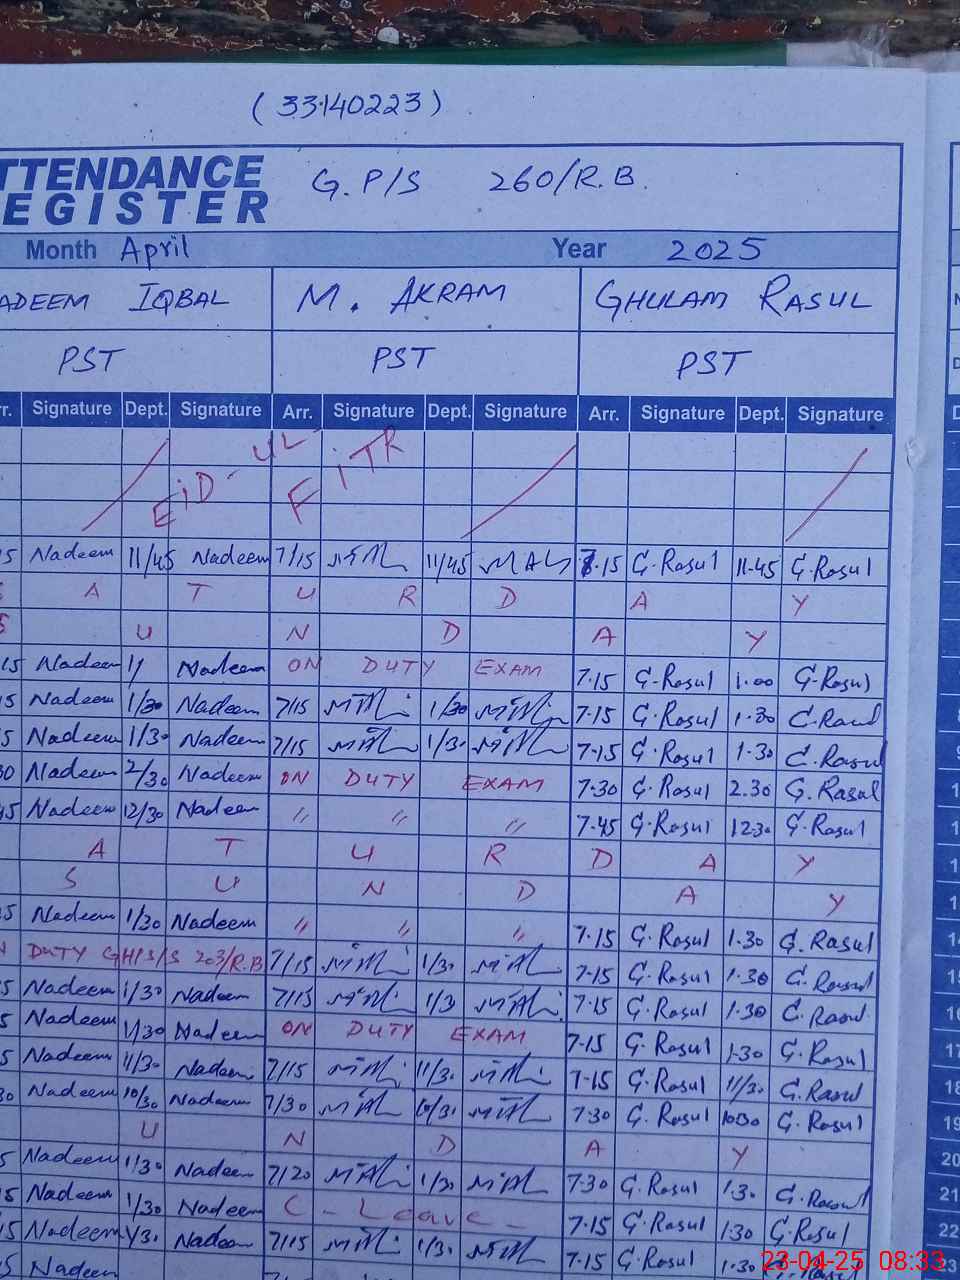 (33140223)
TTENDANCE G.P/S 260/R.B.
EGISTER
Month April Year 2025
ADEEM IQBAL M. AKRAM GHULAM RASUL
PST PST PST
rr. Signature Dept. Signature Arr. Signature Dept. Signature Arr. Signature Dept. Signature
EID-UL-FITR
15 Nadeem 11/45 Nadeem 7/15 11/45 7.15 G.Rasul 11.45 G.Rasul
S A T U R D A Y
S U N D A Y
15 Nadeem 1/ Nadeem ON DUTY EXAM 7.15 G.Rasul 1.00 G.Rasul
15 Nadeem 1/30 Nadeem 7/15 1/30 7.15 G.Rasul 1.30 G.Rasul
15 Nadeem 1/30 Nadeem 7/15 1/30 7.15 G.Rasul 1.30 G.Rasul
30 Nadeem 2/30 Nadeem ON DUTY EXAM 7.30 G.Rasul 2.30 G.Rasul
45 Nadeem 12/30 Nadeem " " " 7.45 G.Rasul 12.30 G.Rasul
A T U R D A Y
S U N D A Y
15 Nadeem 1/30 Nadeem " " " 7.15 G.Rasul 1.30 G.Rasul 14
N DUTY GH/S/S 203/R.B 7/15 1/30 7.15 G.Rasul 1.30 G.Rasul 15
5 Nadeem 1/30 Nadeem 7/15 1/3 7.15 G.Rasul 1.30 G.Rasul 16
5 Nadeem 1/30 Nadeem ON DUTY EXAM 7.15 G.Rasul 1.30 G.Rasul 17
5 Nadeem 11/30 Nadeem 7/15 11/3. 7.15 G.Rasul 11/3. G.Rasul 18
30 Nadeem 10/30 Nadeem 7/30 10/3. 7.30 G.Rasul 10.30 G.Rasul 19
U N D A Y 20
5 Nadeem 1/30 Nadeem 7/20 1/30 7.30 G.Rasul 1.30 G.Rasul 21
15 Nadeem 1/30 Nadeem C-Leave- 7.15 G.Rasul 1.30 G.Rasul 22
15 Nadeem 1/3. Nadeem 7/15 1/30 7.15 G.Rasul 1.30 23
5 Nadeem
23-04-25 08:33